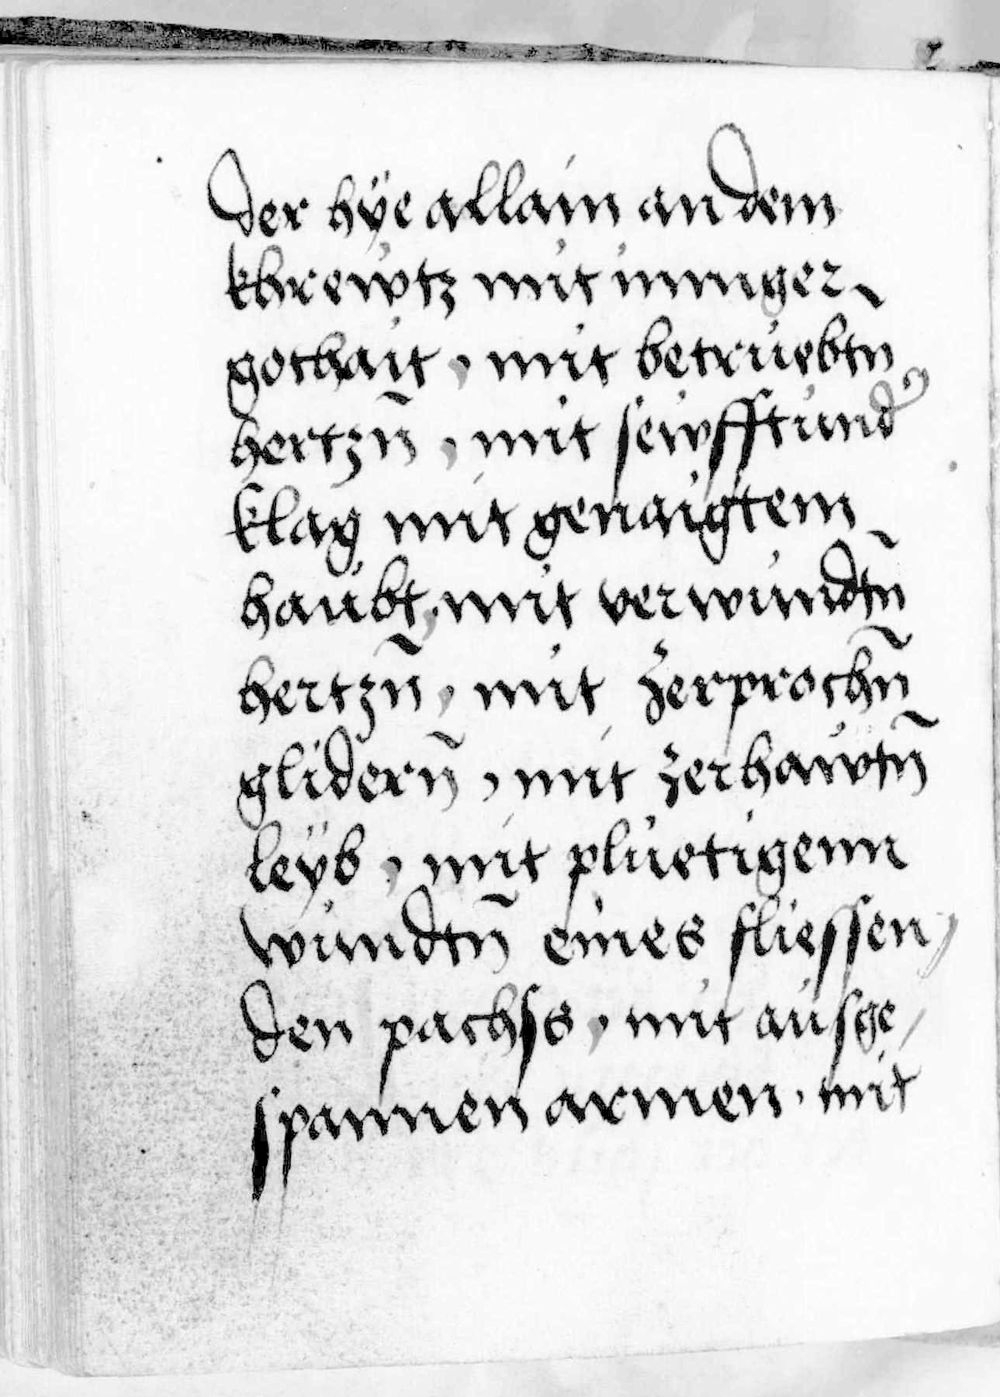 der hÿe allain an dem
khrewtz mit inniger
gothait, mit betrüebtn
hertzn̄, mit sewfftund
klag mit genaigtem
haübt, mit verwundtn̄
hertzn̄, mit zerprochn̄
glidern̄, mit zerhawtn̄
leÿb, mit plüetigenn
wundtn̄ eines fliessen/
den pachss, mit ausge/
spannen armen. mit